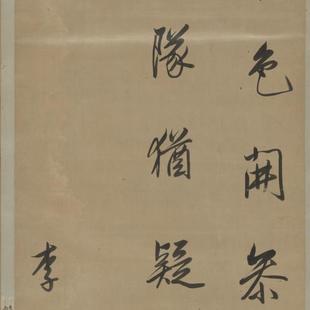 色開茶
隊猶疑
李